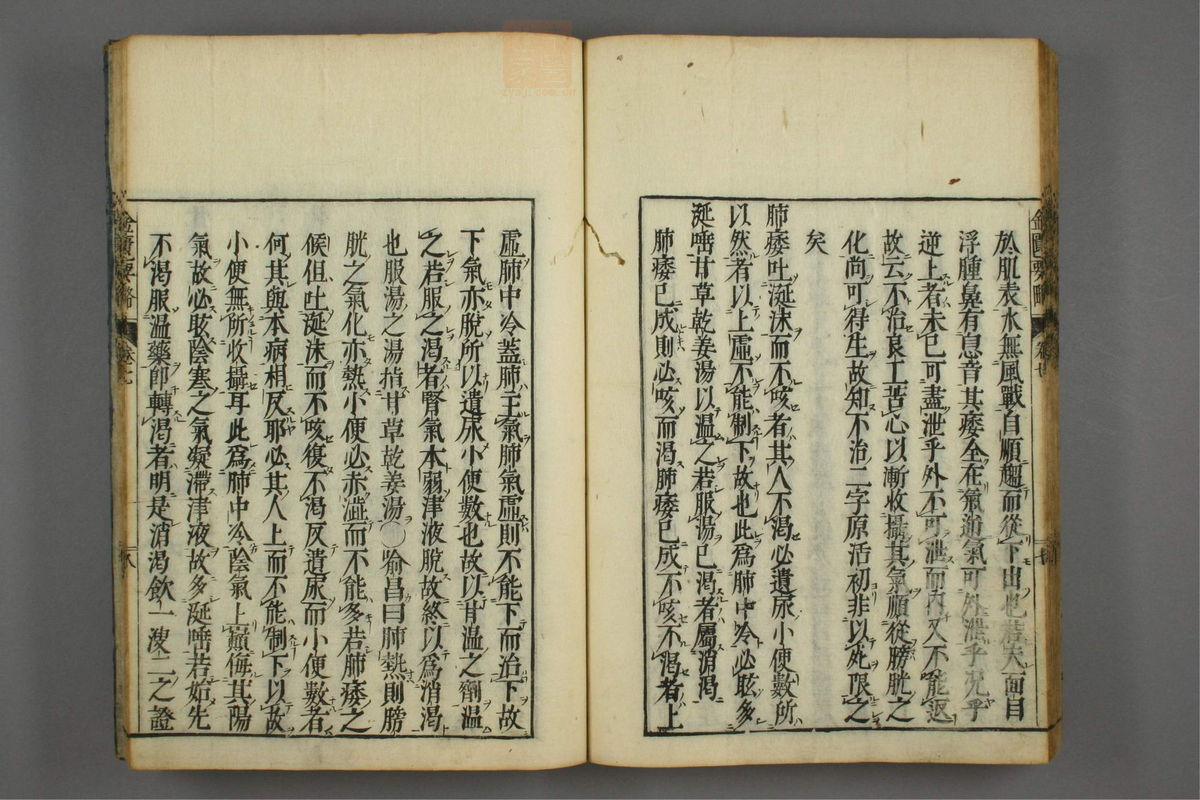 於肌表水無風戰自順趨而從下出也若夫面目
浮腫鼻有息音其痿全在氣逆氣可外泄乎况乎
逆上者未已可盡泄乎外不可泄而内又不能返
故云不治良工苦心以漸收攝其氣順從膀胱之
化尚可得生故知不治二字原活初非以死限之
矣
肺痿吐涎沫而不咳者其人不渴必遺尿小便數所
以然者以上虛不能制下故也此爲肺中冷必眩多
涎唾甘草乾姜湯以温之若服湯已渴者屬消渴
肺痿已成則必咳而渴肺痿已成不咳不渴者上
虛肺中冷蓋肺主氣肺氣虛則不能下而治下故
下氣亦脫所以遺尿小便數也故以甘温之劑温
之若服之渴者腎氣本弱津液脫故終以爲消渴
也服湯之湯指甘草乾姜湯○喻昌曰肺熱則膀
胱之氣化亦熱小便必赤澁而不能多若肺痿之
候但吐涎沫而不咳復不渴反遺尿而小便數者
何其與本病相反耶必其人上而不能制下以故
小便無所收攝耳此爲肺中冷陰氣上巓侮其陽
氣故必眩陰寒之氣凝滯津液故多涎唾若始先
不渴服温藥即轉渴者明是消渴飲一溲二之證